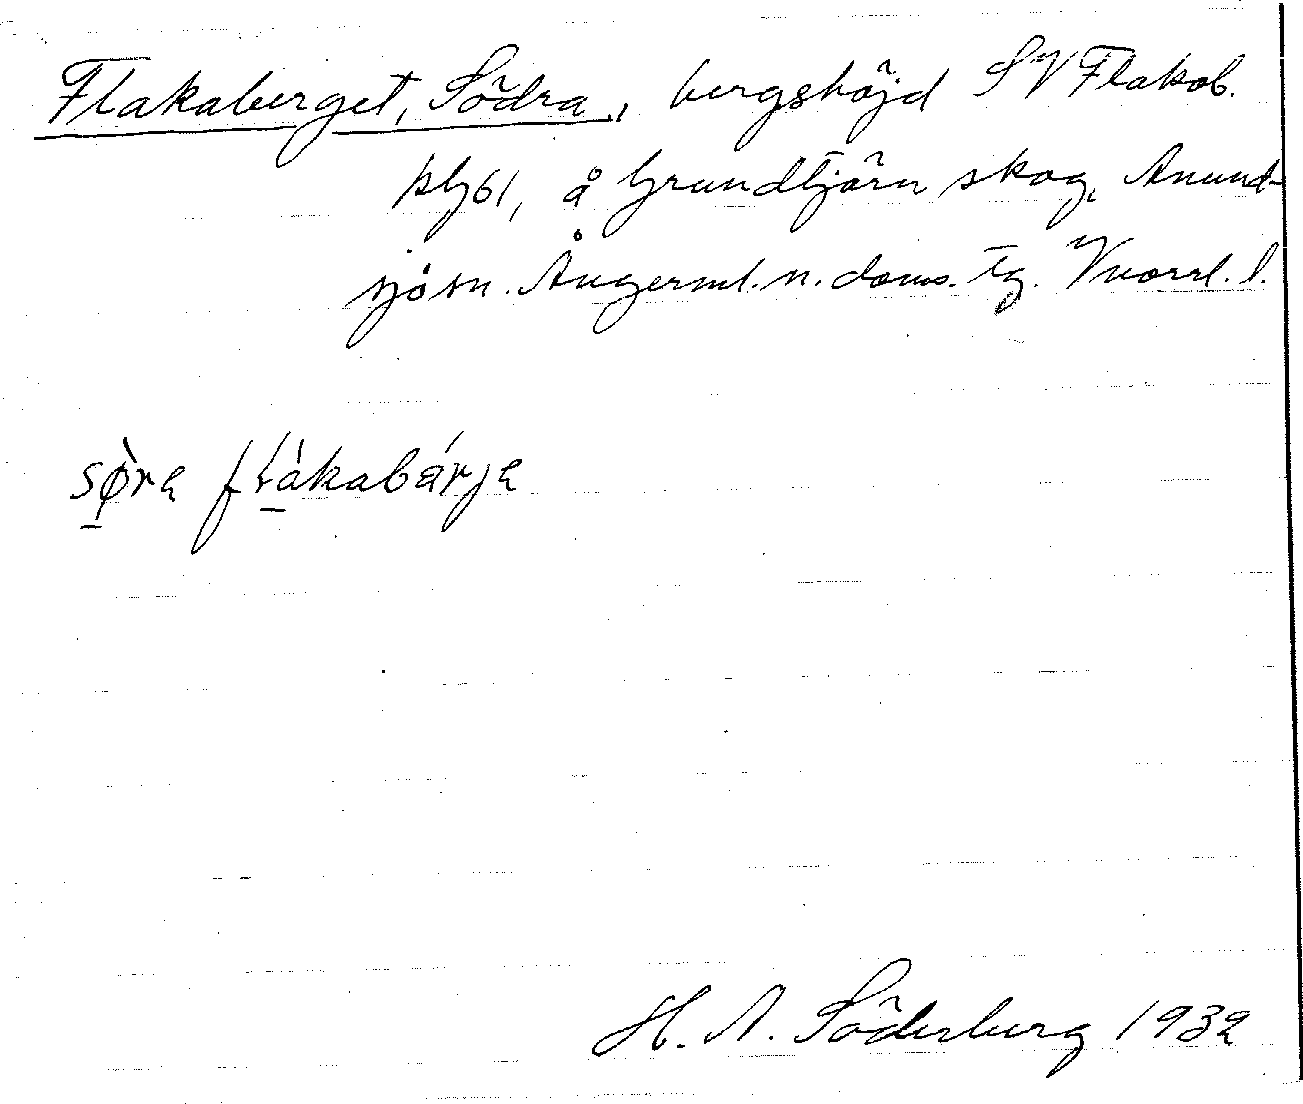 Flakaberget, Södra, bergshöjd SV Flakab.
å Grundtjärn skog, Anund-
sjö sn. Ångerml. n. doms. Tg. Vnorrl. l.
sø̀ra flàkabárja
H. A. Söderberg 1932